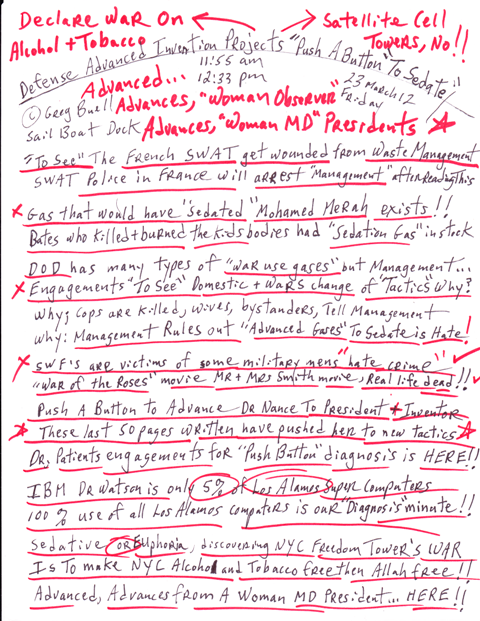 Declare War On
Satellite Cell
Alcohol + Tobacco
Towers, No!!
Defense Advanced Invention Projects "Push A Button" To Sedate"
11:55 am
Advanced... 12:33 pm
23 March 12
Friday
© Greg Buell Advances, "Woman Observer"
Sail Boat Dock Advances, "Woman MD" Presidents
"To See" The French SWAT get wounded from Waste Management
SWAT Police in France will arrest "Management" after Reading This
Gas that would have 'Sedated' "Mohamed Merah exists!!
Bates who killed + burned the kids bodies had "Sedation Gas" in stock
DOD has many types of "war use gases" but Management...
Engagements "To See" Domestic + Wars change of "Tactics" Why?
Why; Cops are killed, wives, bystanders, Tell Management
why: Management Rules out "Advanced Gases" To Sedate is Hate!
SWF's are victims of some military mens "hate crime"
"War of the Roses" movie Mr + Mrs Smith movie, Real life dead!!
Push A Button to Advance Dr Nance To President + Inventor
These last 50 pages written have pushed her to new tactics
Dr, Patients engagements for "Push Button" diagnosis is HERE!!
IBM Dr Watson is only 5% of Los Alamos Super Computers
100% use of all Los Alamos computers is our "Diagnosis" minute!!
Sedative or Euphoria, discovering NYC Freedom Tower's WAR
Is To make NYC Alcohol and Tobacco free then Allah free!!
Advanced, Advances from A Woman MD President... HERE!!